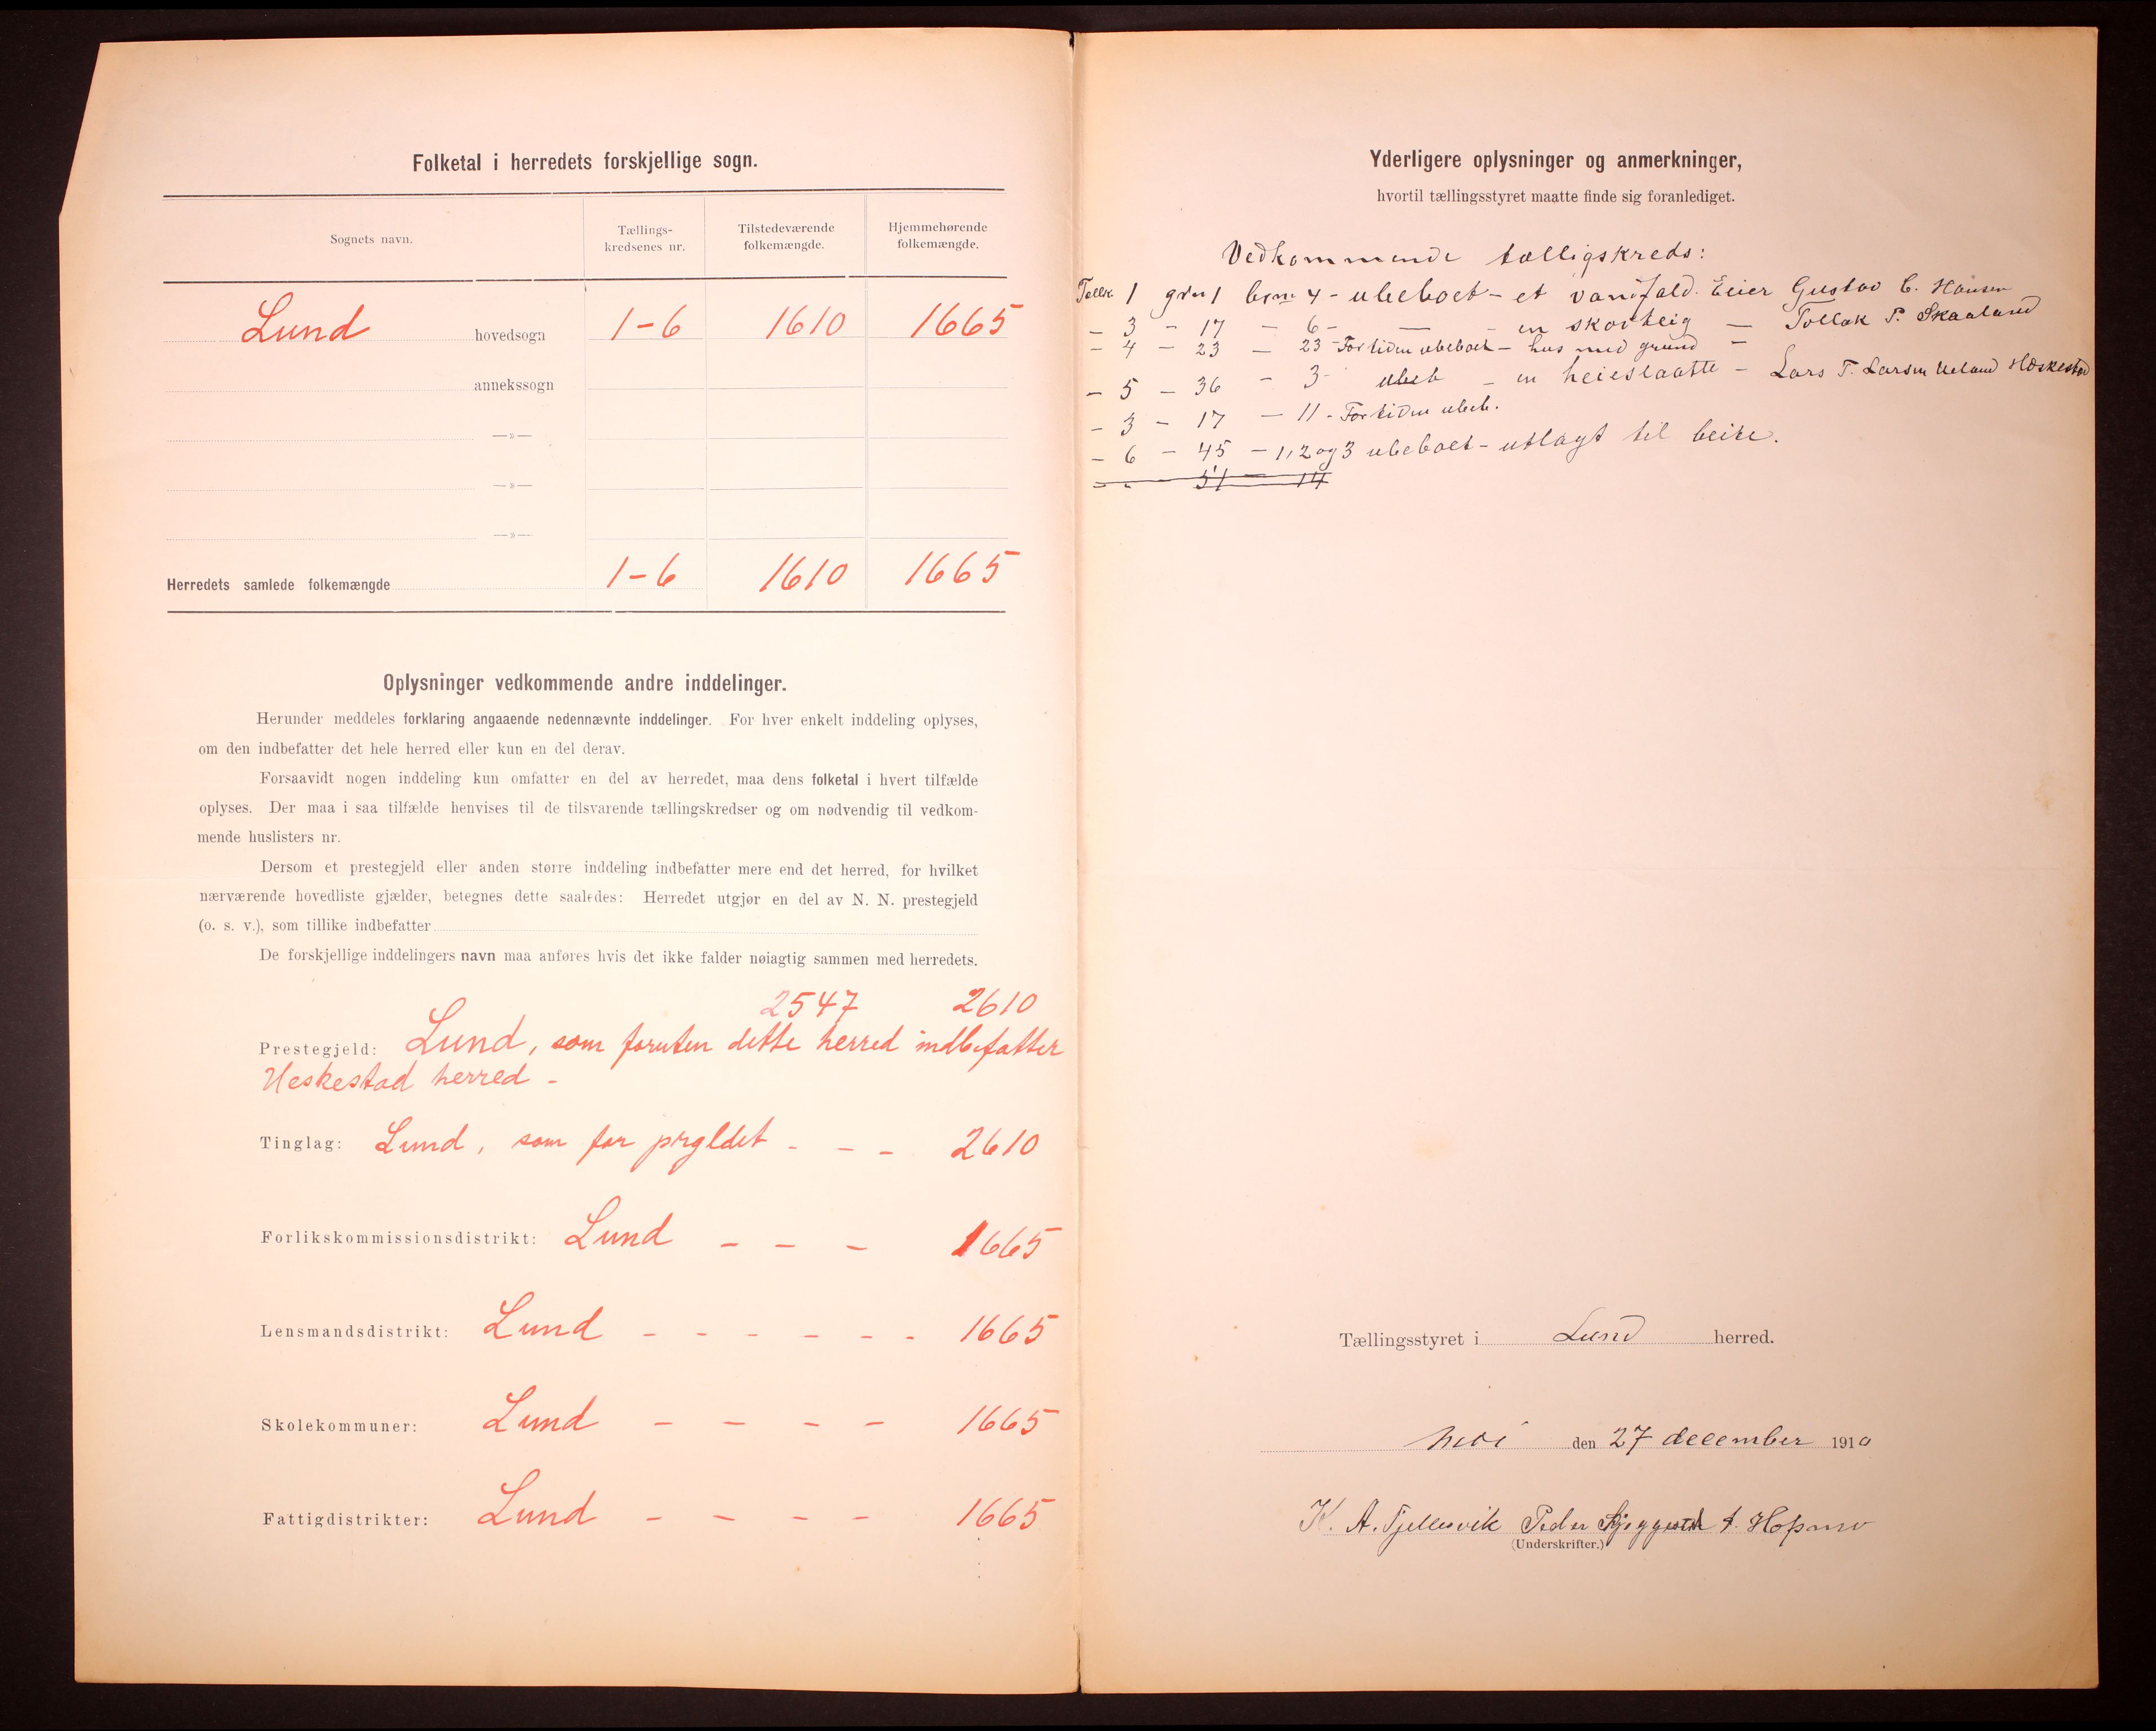 Folketal i herredets forskjellige sogn.
Sognets navn. Tællings-kredsenes nr. Tilstedeværende folkemængde. Hjemmehørende folkemængde.
Lund hovedsogn 1-6 1610 1665
annekssogn
—»—
—»—
—»—
Herredets samlede folkemængde 1-6 1610 1665
Oplysninger vedkommende andre inddelinger.
Herunder meddeles forklaring angaaende nedennævnte inddelinger. For hver enkelt inddeling oplyses,
om den indbefatter det hele herred eller kun en del derav.
Forsaavidt nogen inddeling kun omfatter en del av herredet, maa dens folketal i hvert tilfælde
oplyses. Der maa i saa tilfælde henvises til de tilsvarende tællingskredser og om nødvendig til vedkom-
mende huslisters nr.
Dersom et prestegjeld eller anden større inddeling indbefatter mere end det herred, for hvilket
nærværende hovedliste gjælder, betegnes dette saaledes: Herredet utgjør en del av N. N. prestegjeld
(o. s. v.), som tillike indbefatter
De forskjellige inddelingers navn maa anføres hvis det ikke falder nøiagtig sammen med herredets.
2547 2610
Prestegjeld: Lund, som foruten dette herred indbefatter
Heskestad herred -
Tinglag: Lund, som for prgldet - - - 2610
Forlikskommissionsdistrikt: Lund - - - 1665
Lensmandsdistrikt: Lund - - - - - - 1665
Skolekommuner: Lund - - - - 1665
Fattigdistrikter: Lund - - - - 1665
Yderligere oplysninger og anmerkninger,
hvortil tællingsstyret maatte finde sig foranlediget.
Vedkommende tælligskreds:
Tællk. 1 grn 1 brn. 4 - ubeboet - et vandfald. Eier Gustav C. Hansen
- 3 - 17 - 6 - — - en skovteig — Tollak P. Skaaland
- 4 - 23 - 23 - For tiden ubeboet - hus med grund -
- 5 - 36 - 3 - ubeb - en heieslaatte - Lars T. Larsen Ueland Heskestad
- 3 - 17 - 11 - For tiden ubeb.
- 6 - 45 - 1, 2 og 3 ubeboet - utlagt til beite.
- - 51 - 14
Tællingsstyret i Lund herred.
Moi den 27 december 1910
K. A. Tjellesvik Peder A. Hopmo
(Underskrifter.)